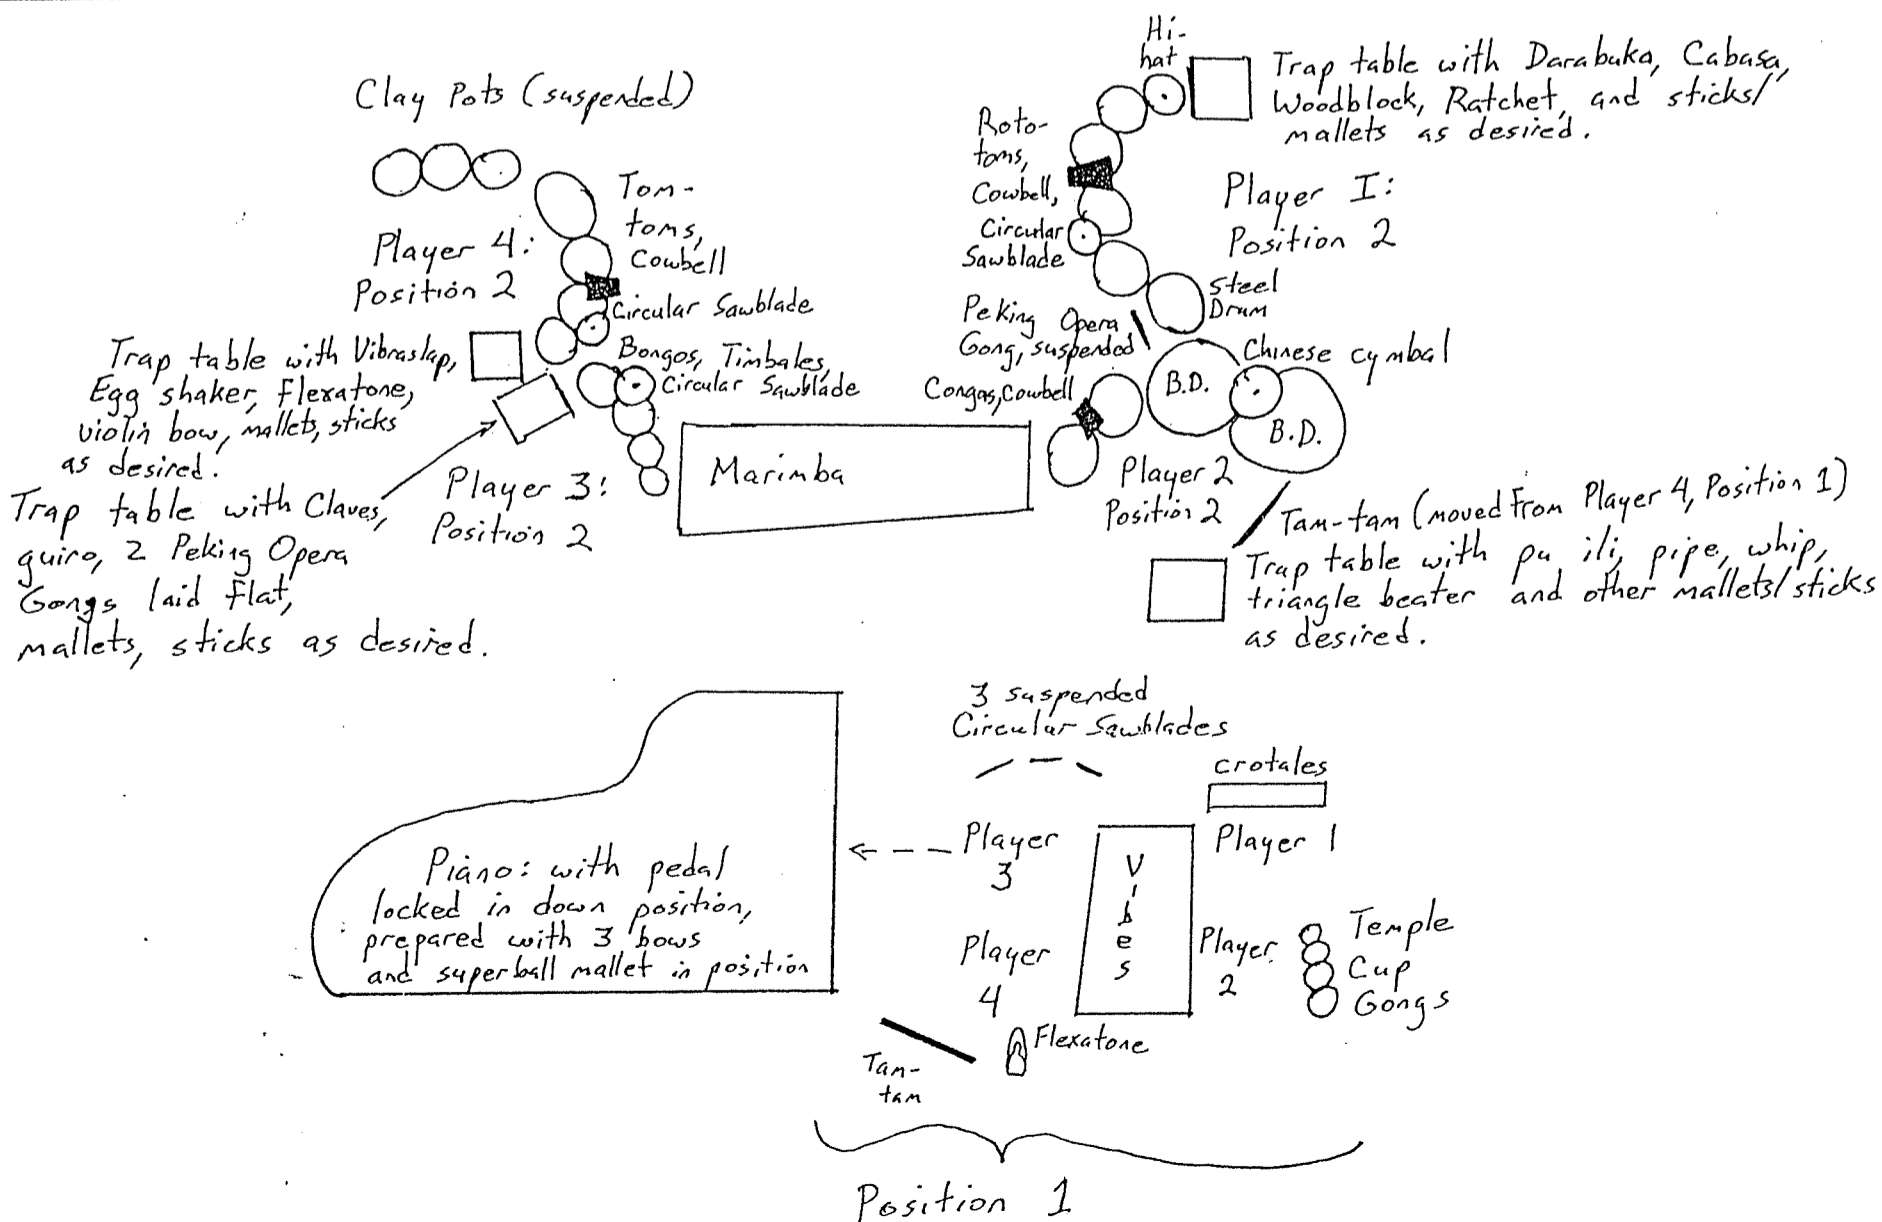 Clay Pots (suspended)
Tom-
toms,
Cowbell
Player 4:
Position 2
Circular Sawblade
Trap table with Vibraslap,
Egg shaker, Flexatone,
violin bow, mallets, sticks
as desired.
Bongos, Timbales,
Circular Sawblade
Trap table with Claves,
guiro, 2 Peking Opera
Gongs laid flat,
mallets, sticks as desired.
Player 3:
Position 2
Marimba
Hi-
hat
Trap table with Darabuka, Cabasa,
Woodblock, Ratchet, and sticks/
mallets as desired.
Roto-
toms,
Cowbell,
Circular
Sawblade
Player I:
Position 2
Steel
Drum
Peking Opera
Gong, suspended
Chinese cymbal
B.D.
B.D.
Congas, Cowbell
Player 2
Position 2
Tam-tam (moved from Player 4, Position 1)
Trap table with pu ili, pipe, whip,
triangle beater and other mallets/sticks
as desired.
3 suspended
Circular Sawblades
crotales
Player 1
Player
3
Vibes
Piano: with pedal
locked in down position,
prepared with 3 bows
and superball mallet in position
Player
4
Player
2
Temple
Cup
Gongs
Flexatone
Tam-
tam
Position 1